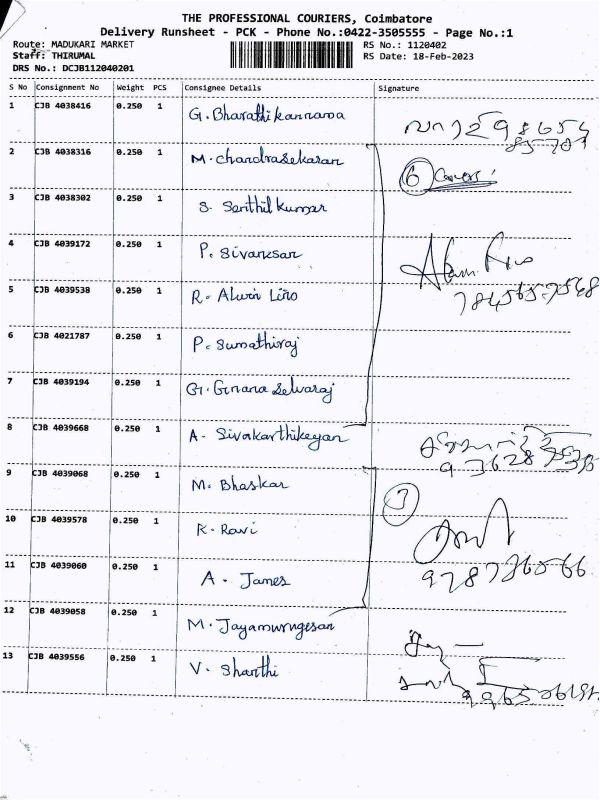 THE PROFESSIONAL COURIERS, Coimbatore
Delivery Runsheet - PCK - Phone No.:0422-3505555 - Page No.:1
Route: MADUKARI MARKET RS No.: 1120402
Staff: THIRUMAL RS Date: 18-Feb-2023
DRS No.: DCJB112040201
S No Consignment No Weight PCS Consignee Details Signature
1 CJB 4038416 0.250 1 G. Bharathikannama
2 CJB 4038316 0.250 1 M. chandrasekaran
6 Covers
3 CJB 4038302 0.250 1 S. Senthil kumar
4 CJB 4039172 0.250 1 P. Sivanesan
5 CJB 4039538 0.250 1 R. Alwin Lino
6 CJB 4021787 0.250 1 P. Sumathiraj
7 CJB 4039194 0.250 1 G. Gnana Selvaraj
8 CJB 4039668 0.250 1 A. Sivakarthikeyan
9 CJB 4039068 0.250 1 M. Bhaskar
3
10 CJB 4039578 0.250 1 K. Ravi
11 CJB 4039060 0.250 1 A. James
9787786566
12 CJB 4039058 0.250 1 M. Jayamurugesan
13 CJB 4039556 0.250 1 V. Shanthi